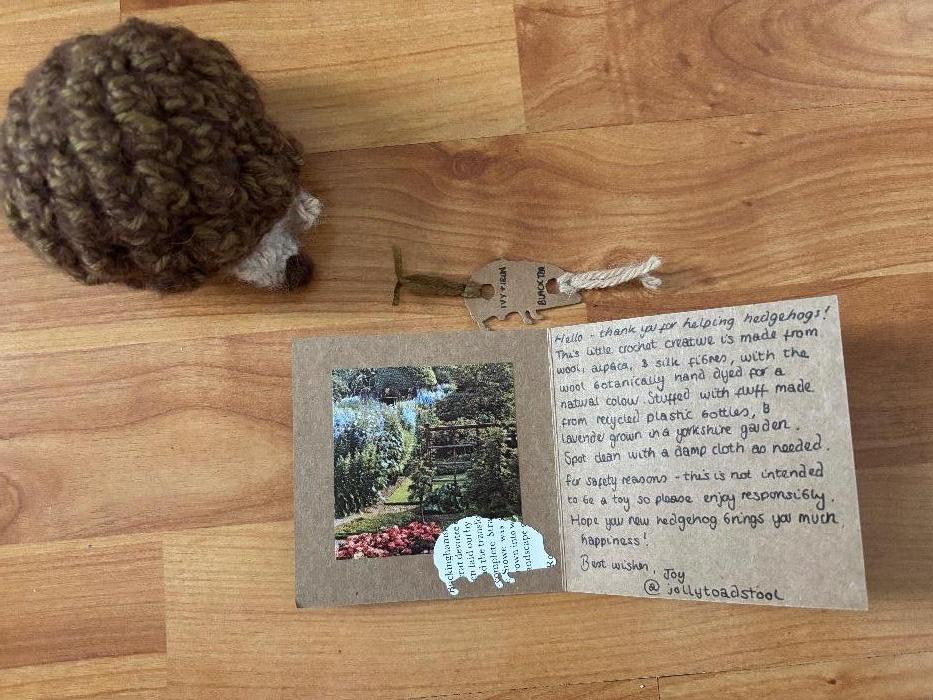 IVY + IRON
BLACK TEA
Hello - thank you for helping hedgehogs!
This little crochet creature is made from
wool, alpaca, & silk fibres, with the
wool botanically hand dyed for a
natural colour. Stuffed with fluff made
from recycled plastic bottles, &
lavender grown in a yorkshire garden.
Spot clean with a damp cloth as needed.
For safety reasons - this is not intended
to be a toy so please enjoy responsibly.
Hope your new hedgehog brings you much
happiness!
Best wishes,
Joy
@jollytoadstool
Buckinghams
rat devotee
laid out by
d the transfo
omplete. Stra
Stowe was
own into w
ndscape